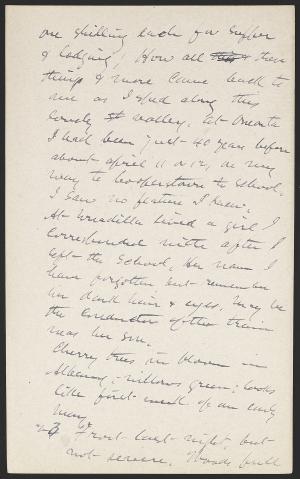 one shilling each for supper
& lodging, How all this & these
things & more came back to
me as I sped along this
lovely st valley. At Oneonta
I had been just 40 years before
about April 11 or 12, on my
way to Cooperstown to School.
I saw no feature I knew.
At Unadilla lived a girl I
corresponded with after I
left the School. Her name I
have forgotten but remember
her dark hair & eyes. May be
the conductor of the train
was her son.
Cherry trees in bloom in
Albany; willows green; looks
like first week of an early
May.
23 Frost last night, but
not severe. Woods full